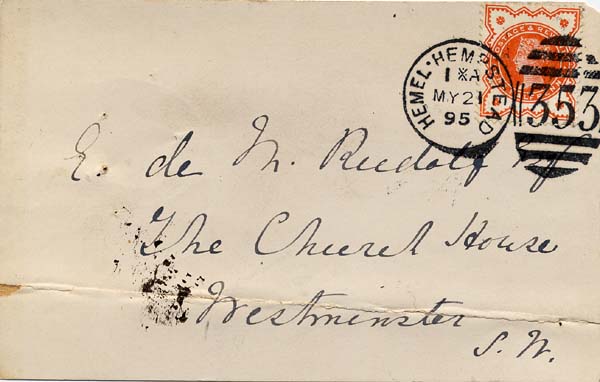 POSTAGE & RE
HEMEL · HEMPSTEAD
1 A
MY 21
95
353
E. de M. Rudolf Esq
The Church House
Westminster
S. W.